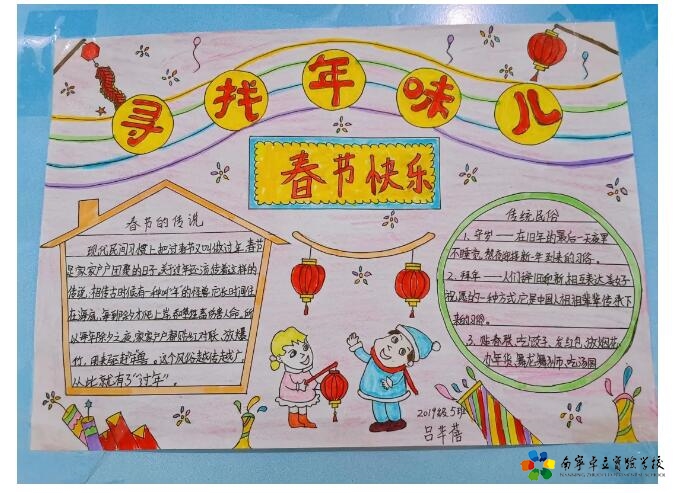 寻找年味儿
春节快乐
春节的传说
现代民间习惯上把过春节又叫做过年,春节
是家家户户团聚的日子,关于过年还流传着这样的
传说,相传古时候有一种叫"年"的怪兽,它长时间住
在海底,每到除夕才爬上岸
以每年除夕之夜,家家户户都贴红对联,放爆
竹,用来
从此就有了"过年"。
传统民俗
1、守岁——在旧年的最后一天夜里
不睡觉,熬夜迎接新一年到来的习俗。
2、拜年——人们辞旧迎新,相互表达美好
祝愿的一种方式,它是中国人祖祖辈辈传承下
来的习俗。
3、贴春联,吃饺子,发红包,放烟花,
办年货,舞龙舞狮,吃汤圆
2019级5班
南宁卓立实验学校